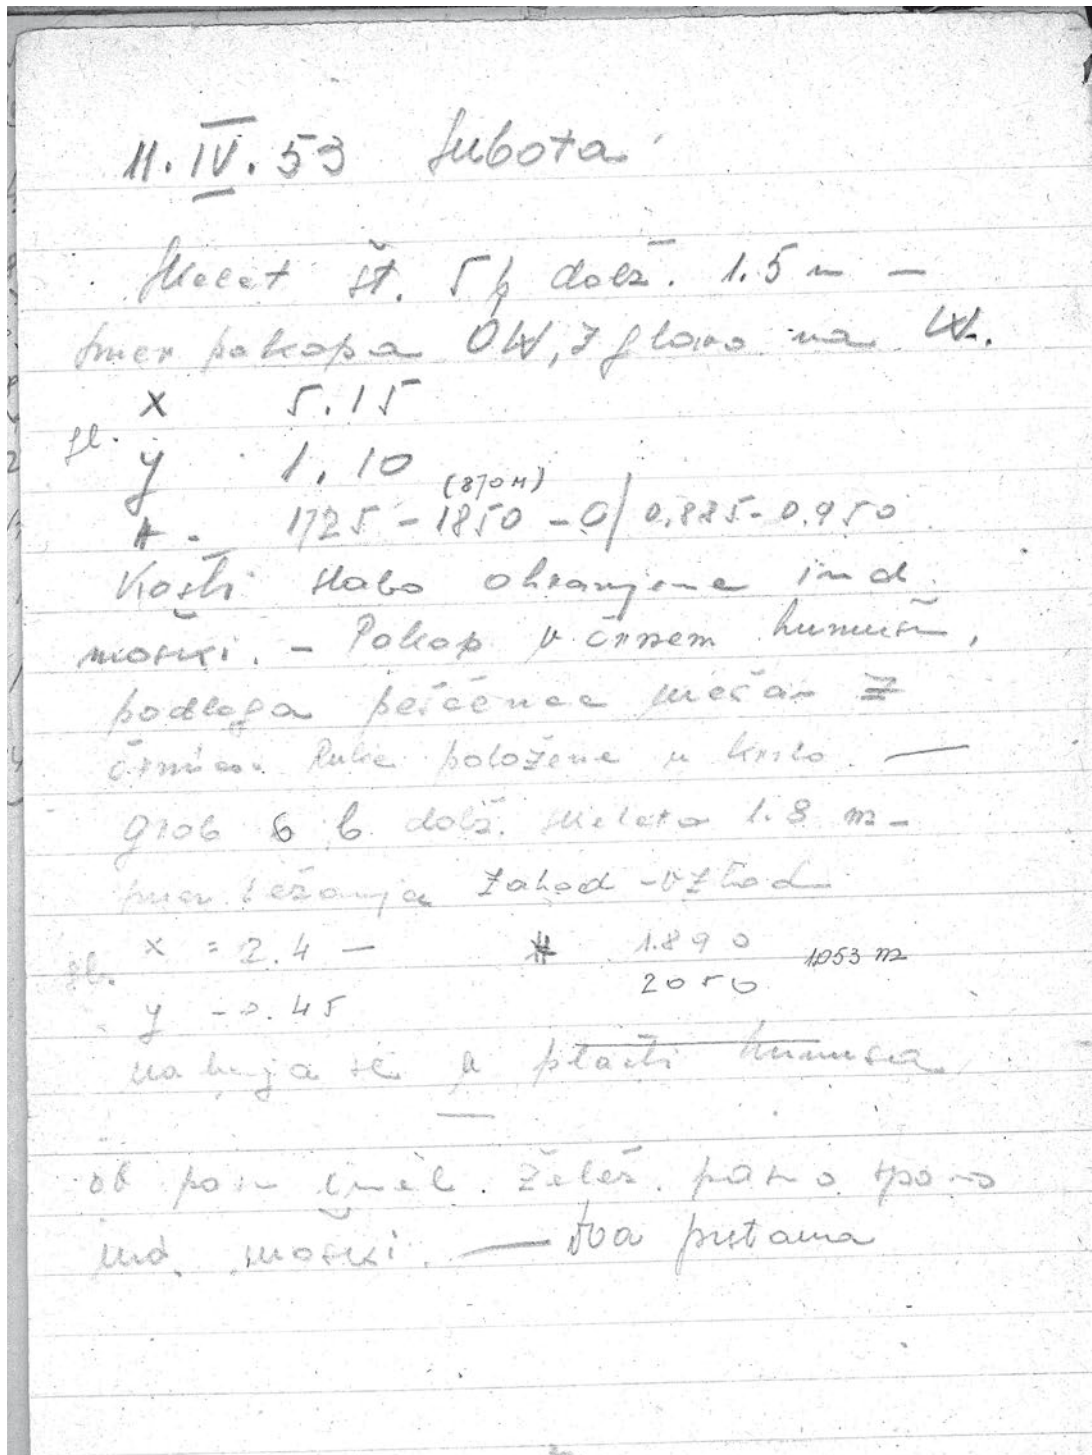 11.IV.53 Subota
Skelet št. 5 b dolž. 1.5 m —
smer pokopa OW, z glavo na W.
x 5.15
gl.
y 1,10
(870 H)
1725 - 1850 - 0/ 0.885 - 0.950
Kosti slabo ohranjene ind.
moški. - Pokop v črnem humusu,
podloga peščenec mešan z
črnico. Ruke položene u krilo. —
grob 6 b. dolž. skeleta 1.8 m -
smer ležanja zahod - vzhod
x = 2.4 — # 1.890
gl. 2050 1053 m
y - 0.45
nahaja se u plasti humusa
—
ob pasu imel. želez. pasno spono
ind. moški. — dva prstana